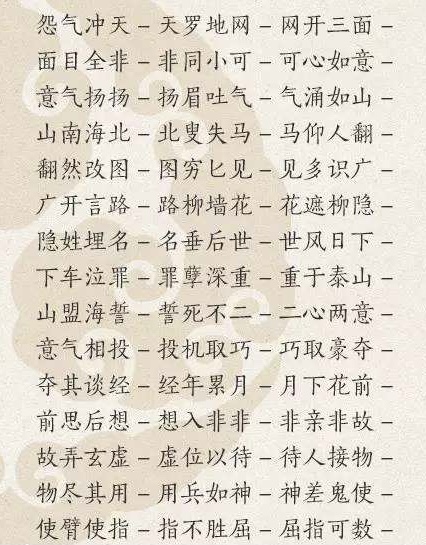 怨气冲天 – 天罗地网 – 网开三面 –
面目全非 – 非同小可 – 可心如意 –
意气扬扬 – 扬眉吐气 – 气涌如山 –
山南海北 – 北叟失马 – 马仰人翻 –
翻然改图 – 图穷匕见 – 见多识广 –
广开言路 – 路柳墙花 – 花遮柳隐 –
隐姓埋名 – 名垂后世 – 世风日下 –
下车泣罪 – 罪孽深重 – 重于泰山 –
山盟海誓 – 誓死不二 – 二心两意 –
意气相投 – 投机取巧 – 巧取豪夺 –
夺其谈经 – 经年累月 – 月下花前 –
前思后想 – 想入非非 – 非亲非故 –
故弄玄虚 – 虚位以待 – 待人接物 –
物尽其用 – 用兵如神 – 神差鬼使 –
使臂使指 – 指不胜屈 – 屈指可数 –